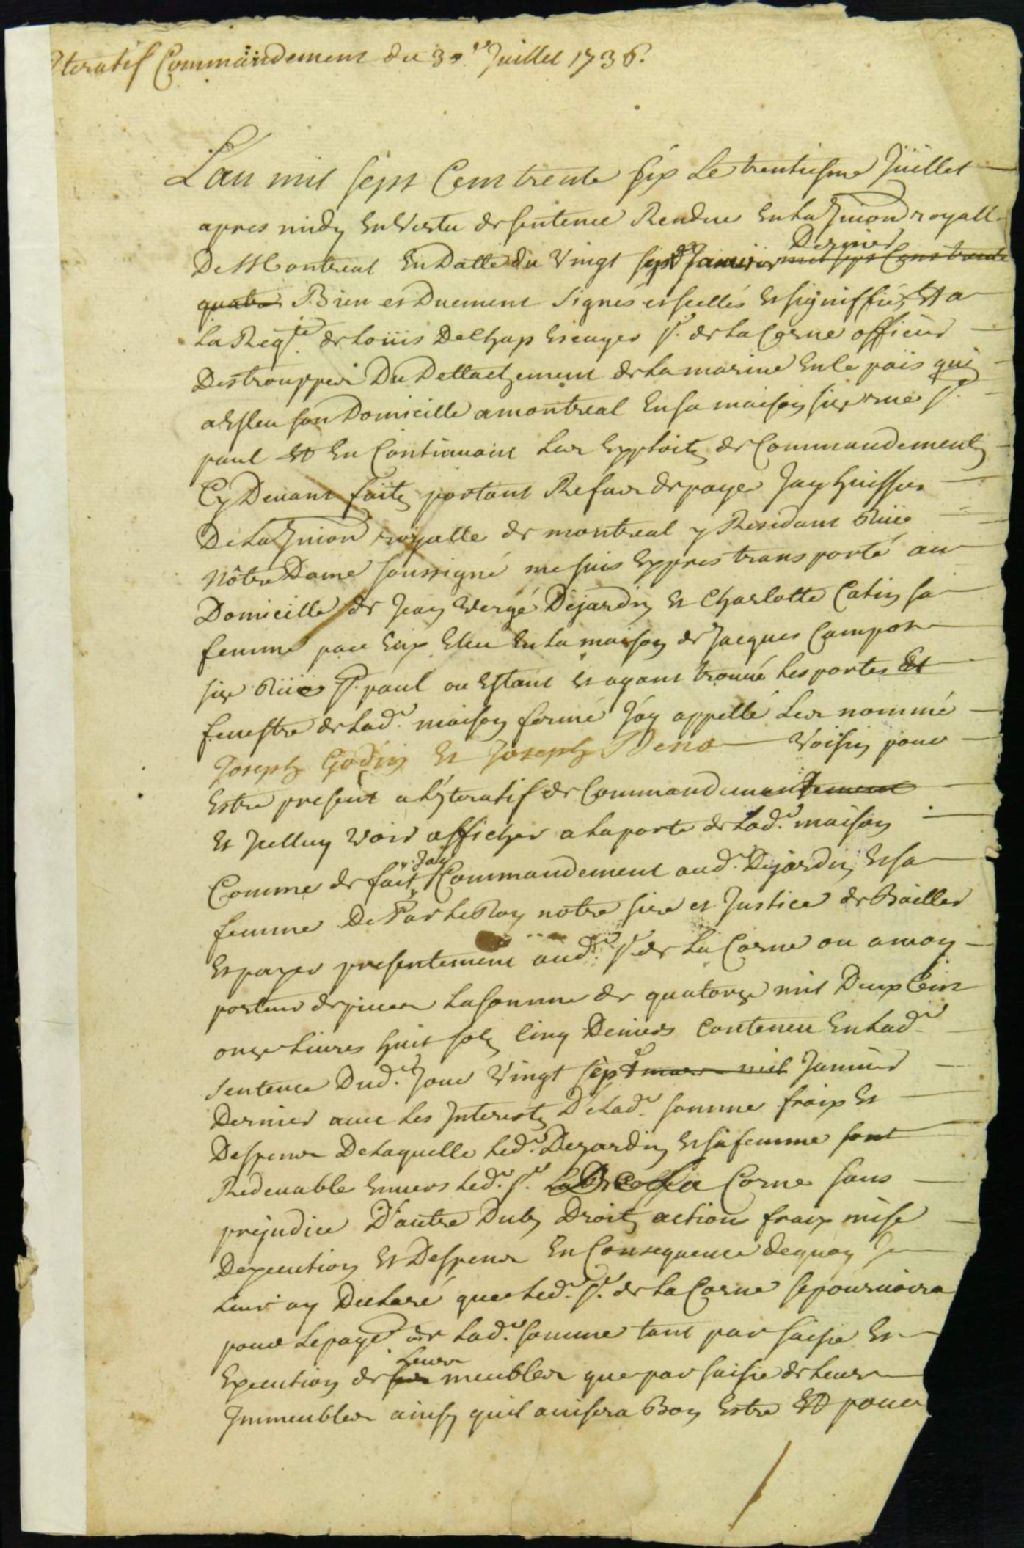 Iteratif Commandement du 30.e Juillet 1736.
L'an mil sept Cent trente six Le trentiesme Juillet
apres midy En Vertu de sentence Rendue En La Jurion royalle
De Montreal En Datte du Vingt sept Janvier Dernier mil sept Cens trente
quatre Bien et Duement Signés et scellés Et signiffiez Et a
La Reqte de Loüis De Chap Escuyer Sr. de La Corne officier
Des trouppes Du Dettachement de La marine En Ce païs qui
a Esleu son Domicille a montreal En sa maison size rue St.
paul Et En Continuant Les Exploits de Commandements
Cy Devant faits portant Refus de payer Jay huissier
De La Jurion royalle de montreal y Residant Rüe
Nôtre Dame soussigné me suis Expres transporté au
Domicille de Jean Vergé Dejardin Et Charlotte Catin sa
femme par Eux Eleu En La maison de Jacques Campot
size Rüe St. paul ou Estant Et ayant trouvé Les portes Et
fenestre de Lade. maison fermé Jay appellé Les nommé
Joseph Godin Et Joseph Voisin pour
Estre present a L'yteratif de Commandement
Et Icelluy Voir afficher a La porte de Lade. maison
Comme de fait Jay Commandement aud. Dejardin Et sa
femme De Par Le Roy notre sire et Justice de Bailler
Et payer presentement aud. Sr. de La Corne ou a moy
porteur de pieces La somme de quatorze mil Deux Cent
onze Livres huit sols Cinq Deniers Contenue En Lade
Sentence Dud. Jour Vingt sept mars mil Janvier
Dernier avec Les Interests De Lade. somme fraix Et
Despens De Laquelle Led. Dezardin Et sa femme sont
Redevable Envers Led. Sr. De La Corne sans
prejudice D'autre Dubs Droits actions fraix mise
Dexecution Et Despens En Consequence dequoy Je
Leur ay Declaré que Led. Sr. de La Corne se pourvoira
pour Le paye. de Lade. somme tant par saisie Et
Execution de ses Leurs meubles que par saisie de Leurs
Immeubles ainsy quil avisera Bon Estre Et pour